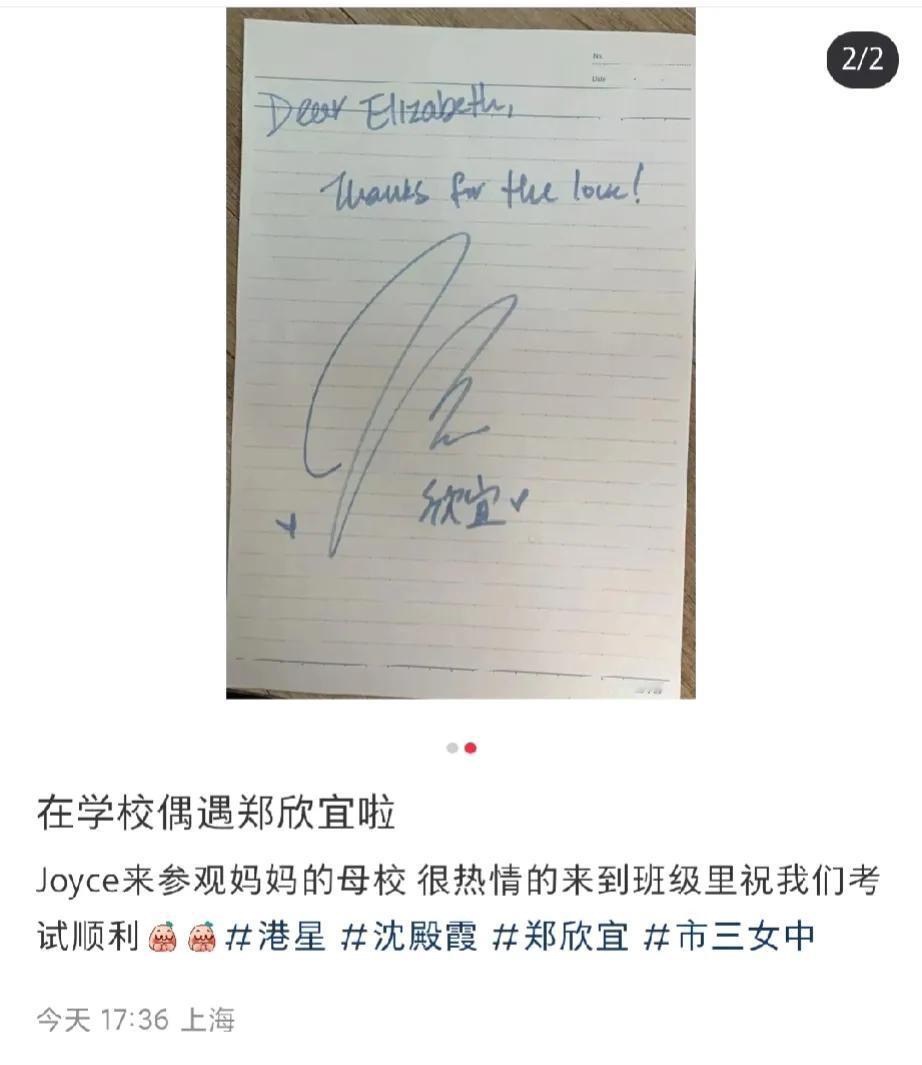 2/2
No.
Date
Dear Elizabeth,
Thanks for the love!
欣宜
在学校偶遇郑欣宜啦
Joyce来参观妈妈的母校 很热情的来到班级里祝我们考
试顺利 #港星 #沈殿霞 #郑欣宜 #市三女中
今天 17:36 上海